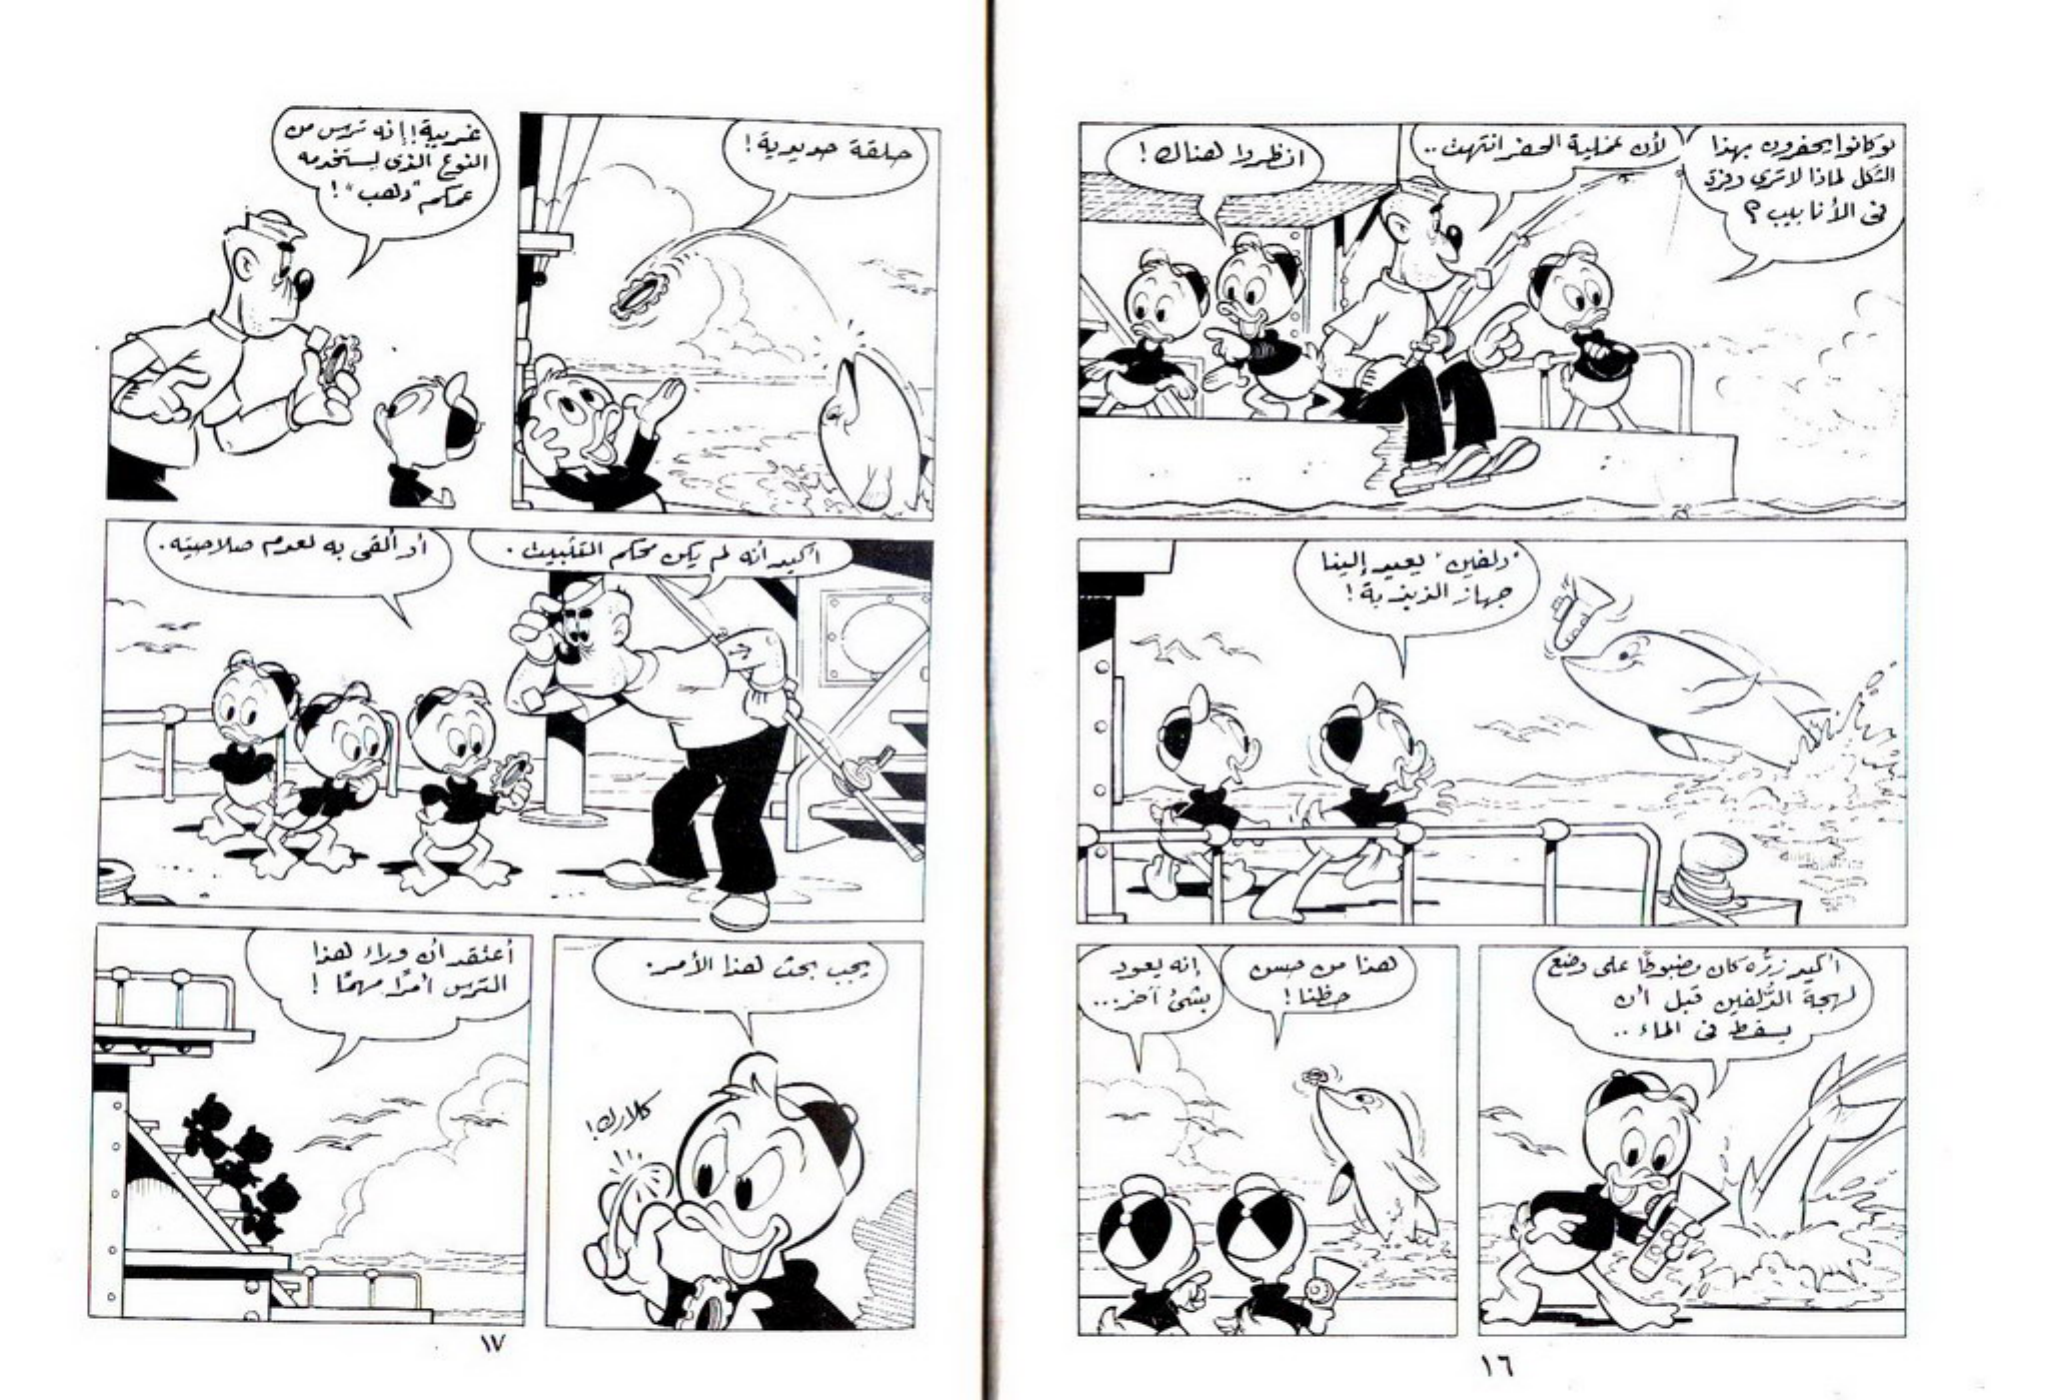 لوكانوا يحفرون بهذا
الشكل لماذا لا ترى وفزة
فى الأنابيب ؟
لأن عملية الحفر انتهت ..
انظروا هناك !
"دلفين" يعيد إلينا
جهاز الذبذبة !
أكيد زره كان مضبوطًا على وضع
لهجة الدُّلفين قبل أن
يسقط فى الماء ..
هذا من حسن
حظنا !
إنه يعود
بشئ آخر...
١٦
حلقة حديدية !
غريبة ! إنه ترس من
النوع الذى يستخدمه
عمكم "دهب" !
أكيد أنه لم يكن محكم التثبيت .
أو ألقى به لعدم صلاحيته .
يجب بحث هذا الأمر .
كلارك !
أعتقد أن وراء هذا
الترس أمرًا مهمًا !
١٧